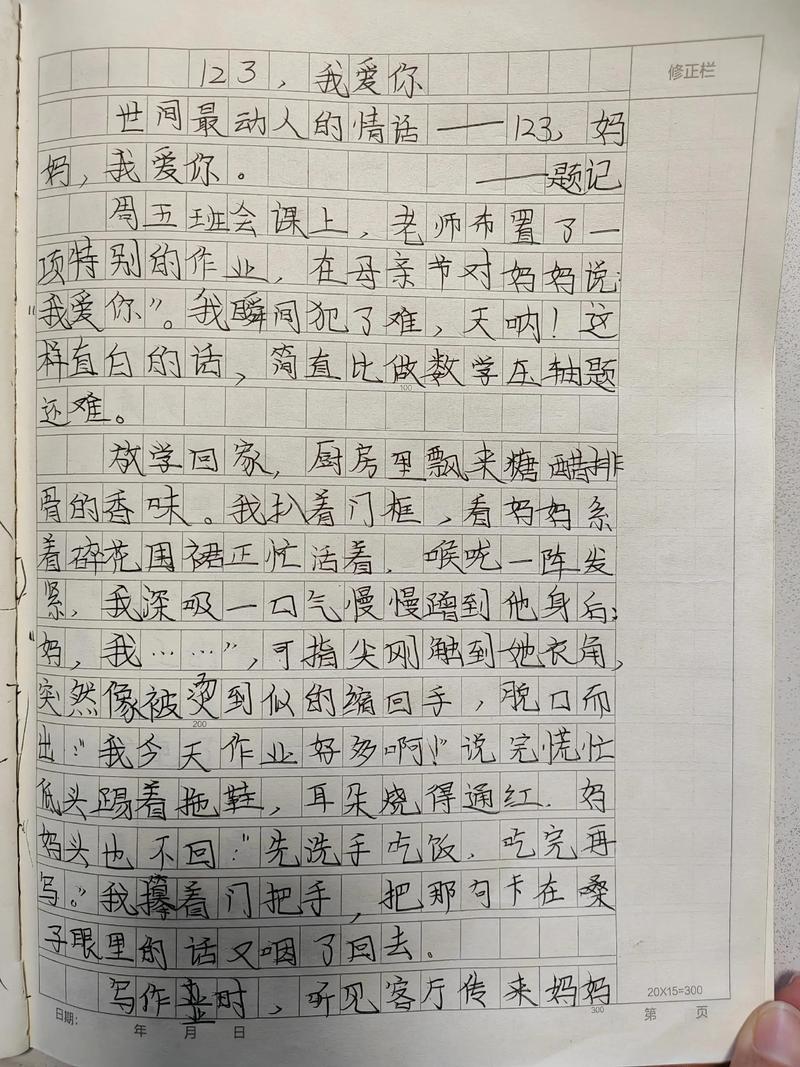 123，我爱你
修正栏
世间最动人的情话——123，妈
妈，我爱你。——题记
周五班会课上，老师布置了一
项特别的作业，在母亲节对妈妈说：
“我爱你”。我瞬间犯了难，天呐！这
样直白的话，简直比做数学压轴题
100
还难。
放学回家，厨房里飘来糖醋排
骨的香味。我扒着门框，看妈妈系
着碎花围裙正忙活着，喉咙一阵发
紧，我深吸一口气慢慢蹭到他身后：
“妈，我……”，可指尖刚触到她衣角，
突然像被烫到似的缩回手，脱口而
200
出：“我今天作业好多啊！”说完慌忙
低头踢着拖鞋，耳朵烧得通红．妈
妈头也不回：“先洗手吃饭，吃完再
写。”我攥着门把手，把那句卡在嗓
子眼里的话又咽了回去。
写作业时，听见客厅传来妈妈
20X15=300
300
日期： 年 月 日
第 页